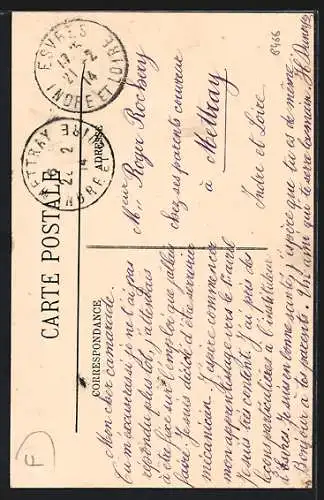 CARTE POSTALE
CORRESPONDANCE
ADRESSE
ESVRES
13 25
21 - 2
14
INDRE ET LOIRE
METTRAY
INDRE ET LOIRE
8466
Mon cher camarade
Tu m'excuseras si je ne t'ai pas
répondu plus tôt, j'attendais
à être fixé sur l'emploi que j'allais
faire. Je suis décidé d'être serrurier
mécanicien. J'espère commencer
mon apprentissage vers le 1er avril
seulement. J'ai pris des
leçons particulières à l'instituteur
d'Esvres. Je suis en bonne santé, j'espère que tu es de même.
Bonjour à tes parents. Ton ami qui te serre la main.
Mr Roger Rochay
chez ses parents couvreur
à Mettray
Indre et Loire
F